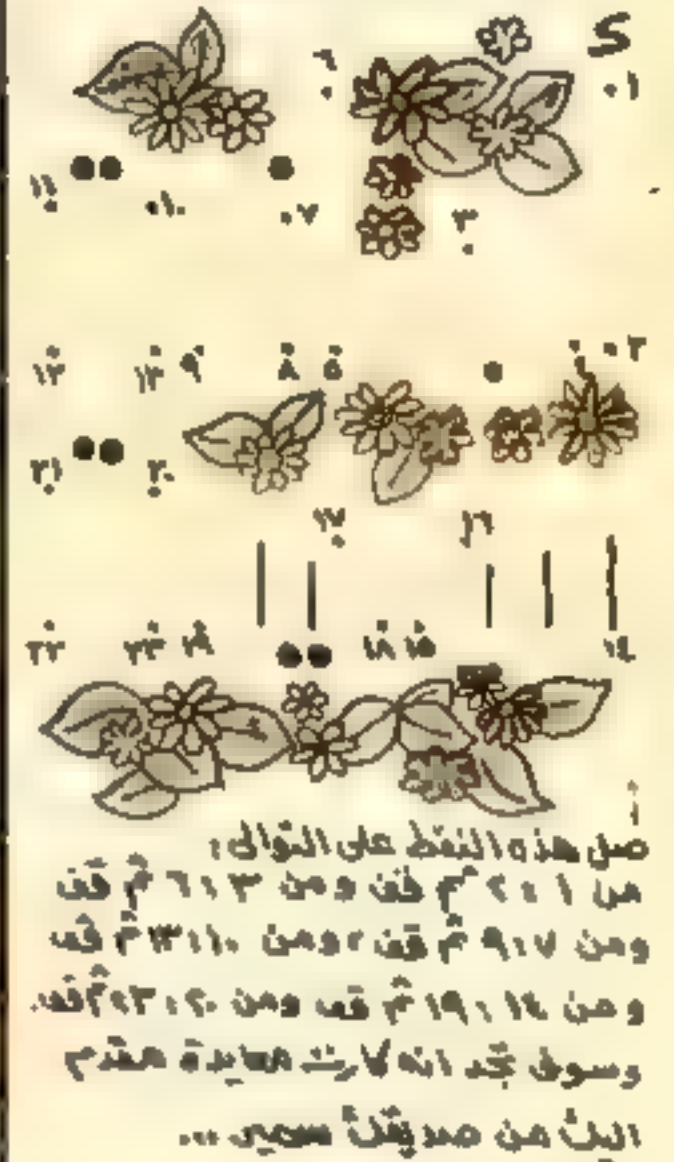 ٦ ١
١١ ١٠ ٧ ٣
١٢ ١٣ ٩ ٨ ٥ ٤ ٢
٢١ ٢٠
١٧ ١٦
٢٢ ٢٣ ١٩ ١٨ ١٥ ١٤
صل هذه النقط على التوالى :
من ١ : ٢ ثم قف ومن ٣ : ٦ ثم قف
ومن ٧ : ٩ ثم قف ، ومن ١٠ : ١٣ ثم قف
ومن ١٤ : ١٩ ثم قف ومن ٢٠ : ٢٣ ثم قف .
وسوف تجد انه كارت معايدة مقدم
اليك من صديقك سمير ...